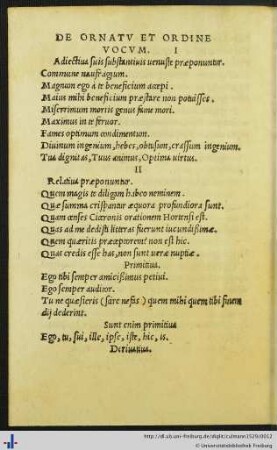 DE ORNATV ET ORDINE
VOCVM. I
Adiectiua suis substantiuis uenuste præponuntur.
Commune naufragium.
Magnum ego à te beneficium accepi.
Maius mihi beneficium præstare non potuisses.
Miserrimum mortis genus fame mori.
Maximus in te feruor.
Fames optimum condimentum.
Diuinum ingenium, hebes, obtusum, crassum ingenium.
Tua dignitas, Tuus animus, Optima uirtus.
II
Relatiua præponuntur.
Quem magis te diligam habeo neminem.
Quæ summa crispantur æquora profundiora sunt.
Quam censes Ciceronis orationem Hortensi est.
Quas ad me dedisti literas fuerunt iucundissimæ.
Quem quæritis præoptorem non est hic.
Quas credis esse has, non sunt ueræ nuptiæ.
Primitiua.
Ego tibi semper amicissimus petiui.
Ego semper auditor.
Tu ne quæsieris (scire nefas) quem mihi quem tibi finem
dij dederint.
Sunt enim primitiua
Ego, tu, sui, ille, ipse, iste, hic, is.
Deriuatiua.
http://dl.ub.uni-freiburg.de/diglit/culmann1529/0012
© Universitätsbibliothek Freiburg